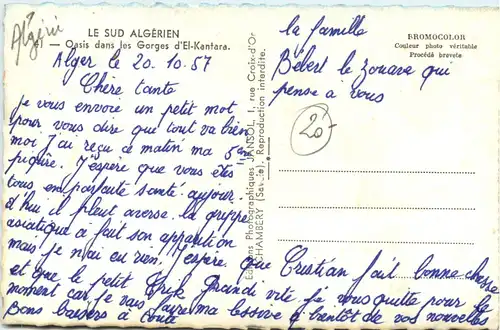 Algérie
LE SUD ALGÉRIEN
41 — Oasis dans les Gorges d'El-Kantara.
Alger le 20.10.57
Chère tante
je vous envoie un petit mot
pour vous dire que tout va bien
moi J'ai reçu ce matin ma 5em
piqûre. J'espère que vous êtes
tous en parfaite santé aujour.
d'hui il pleut averse. la grippe
asiatique à fait son apparition
mais je n'ai eu rien. J'espère que Cristian fait bonne chasse
et que le petit Erik Grandi vite je vous quitte pour le
moment car je vais faire ma lessive à bientôt de vos nouvelles
Bons baisers à toute
la famille
Bébert le zouave qui
pense a vous
20-
BROMOCOLOR
Couleur photo véritable
Procédé breveté
Editions Photographiques JANSOL, 1, rue Croix-d'Or
CHAMBÉRY (Savoie). Reproduction interdite.